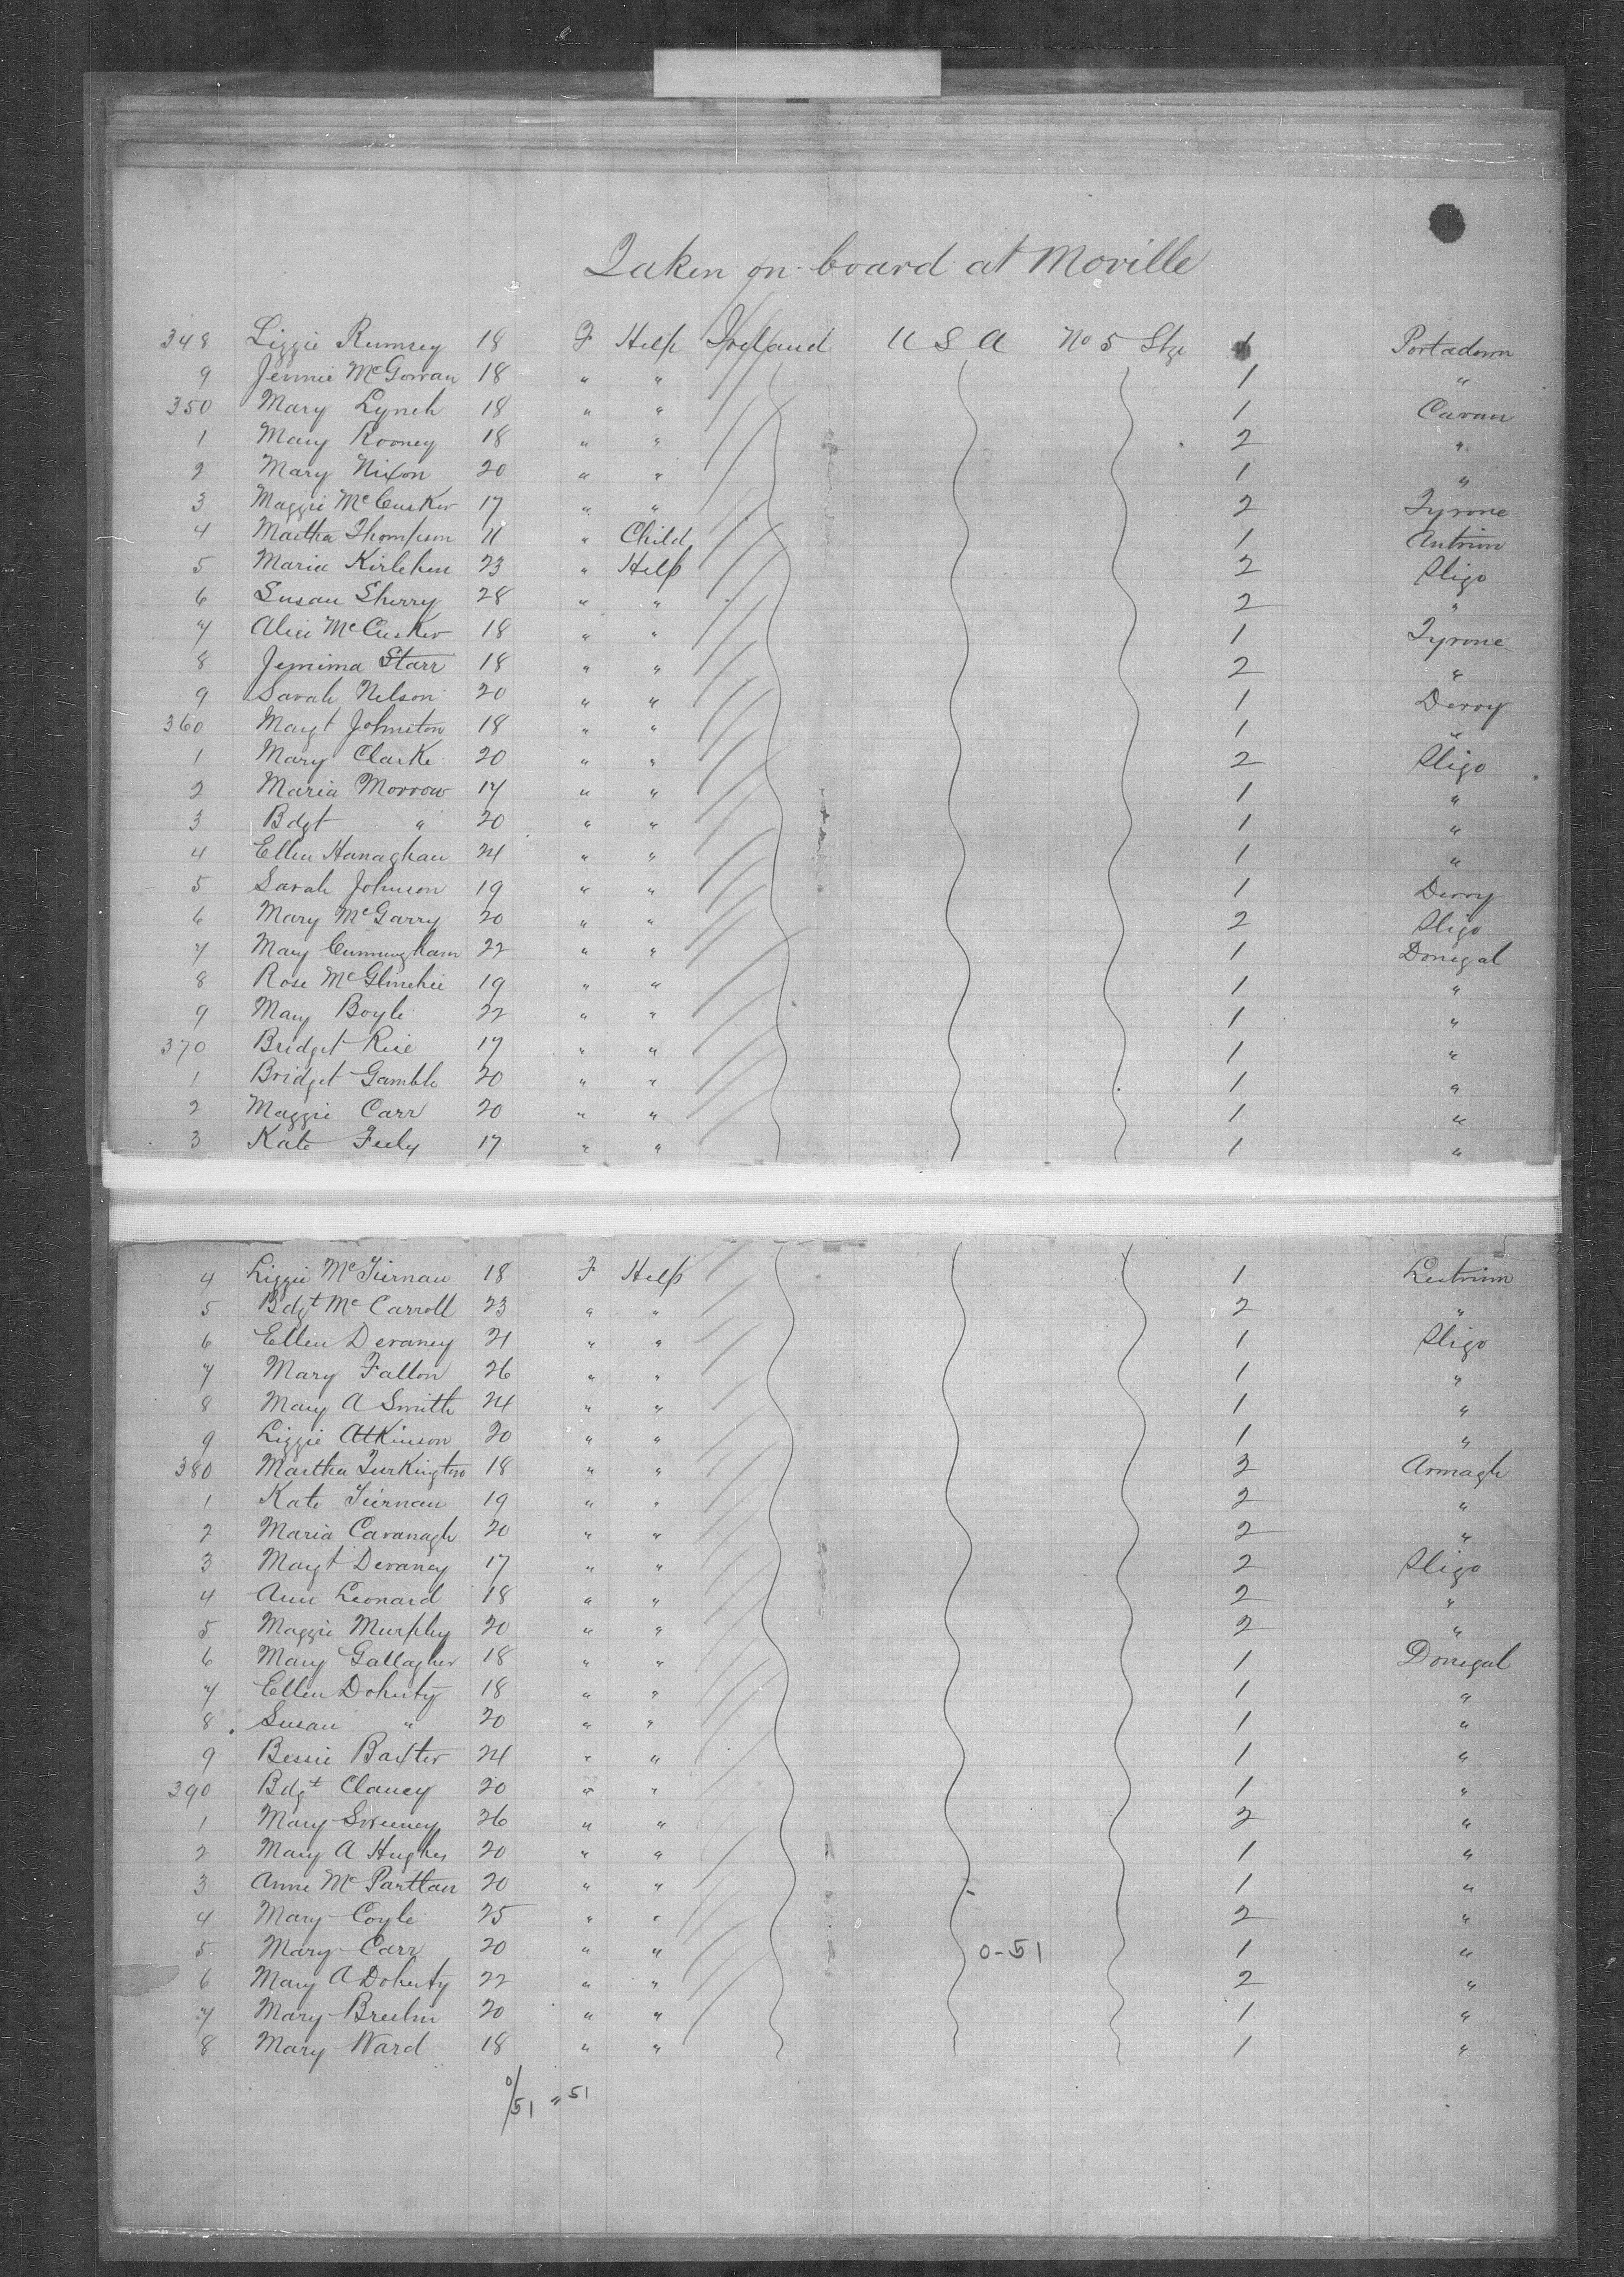 Taken on board at Moville
348 Lizzie Rumsey 18 F Help Ireland U S A No 5 Stge 1 Portadown
9 Jennie McGowan 18 " " 1 "
350 Mary Lynch 18 " " 1 Cavan
1 Mary Rooney 18 " " 2 "
2 Mary Nixon 20 " " 1 "
3 Maggie McCusker 17 " " 2 Tyrone
4 Martha Thompson 11 " Child 1 Antrim
5 Maria 23 " Help 2 Sligo
6 Susan Sherry 28 " " 2 "
7 Alice McCusker 18 " " 1 Tyrone
8 Jemima Starr 18 " " 2 "
9 Sarah Nelson 20 " " 1 Derry
360 Margt Johnston 18 " " 1 "
1 Mary Clarke 20 " " 2 Sligo
2 Maria Morrow 17 " " 1 "
3 Bdgt " 20 " " 1 "
4 Ellen Hanaghan 24 " " 1 "
5 Sarah Johnson 19 " " 1 Derry
6 Mary McGarry 20 " " 2 Sligo
7 Mary Cunningham 22 " " 1 Donegal
8 Rose McGlinchie 19 " " 1 "
9 Mary Boyle 22 " " 1 "
370 Bridget Rice 17 " " 1 "
1 Bridget Gamble 20 " " 1 "
2 Maggie Carr 20 " " 1 "
3 Kate Feely 17 " " 1 "
4 Lizzie McTiernan 18 F Help 1 Leitrim
5 Bdgt McCarroll 23 " " 2 "
6 Ellen Devaney 21 " " 1 Sligo
7 Mary Fallon 26 " " 1 "
8 Mary A Smith 24 " " 1 "
9 Lizzie Atkinson 20 " " 1 "
380 Martha Turkington 18 " " 2 Armagh
1 Kate Tiernan 19 " " 2 "
2 Maria Cavanagh 20 " " 2 "
3 Margt Devaney 17 " " 2 Sligo
4 Ann Leonard 18 " " 2 "
5 Maggie Murphy 20 " " 2 "
6 Mary Gallagher 18 " " 1 Donegal
7 Ellen Doherty 18 " " 1 "
8 Susan " 20 " " 1 "
9 Bessie Baxter 24 " " 1 "
390 Bdgt Clancy 20 " " 1 "
1 Mary Sweeney 26 " " 2 "
2 Mary A Hughes 20 " " 1 "
3 Anne McParttan 20 " " 1 "
4 Mary Coyle 25 " " 2 "
5 Mary Carr 20 " " 0-51 1 "
6 Mary A Doherty 22 " " 2 "
7 Mary Breslin 20 " " 1 "
8 Mary Ward 18 " " 1 "
0/51 " 51